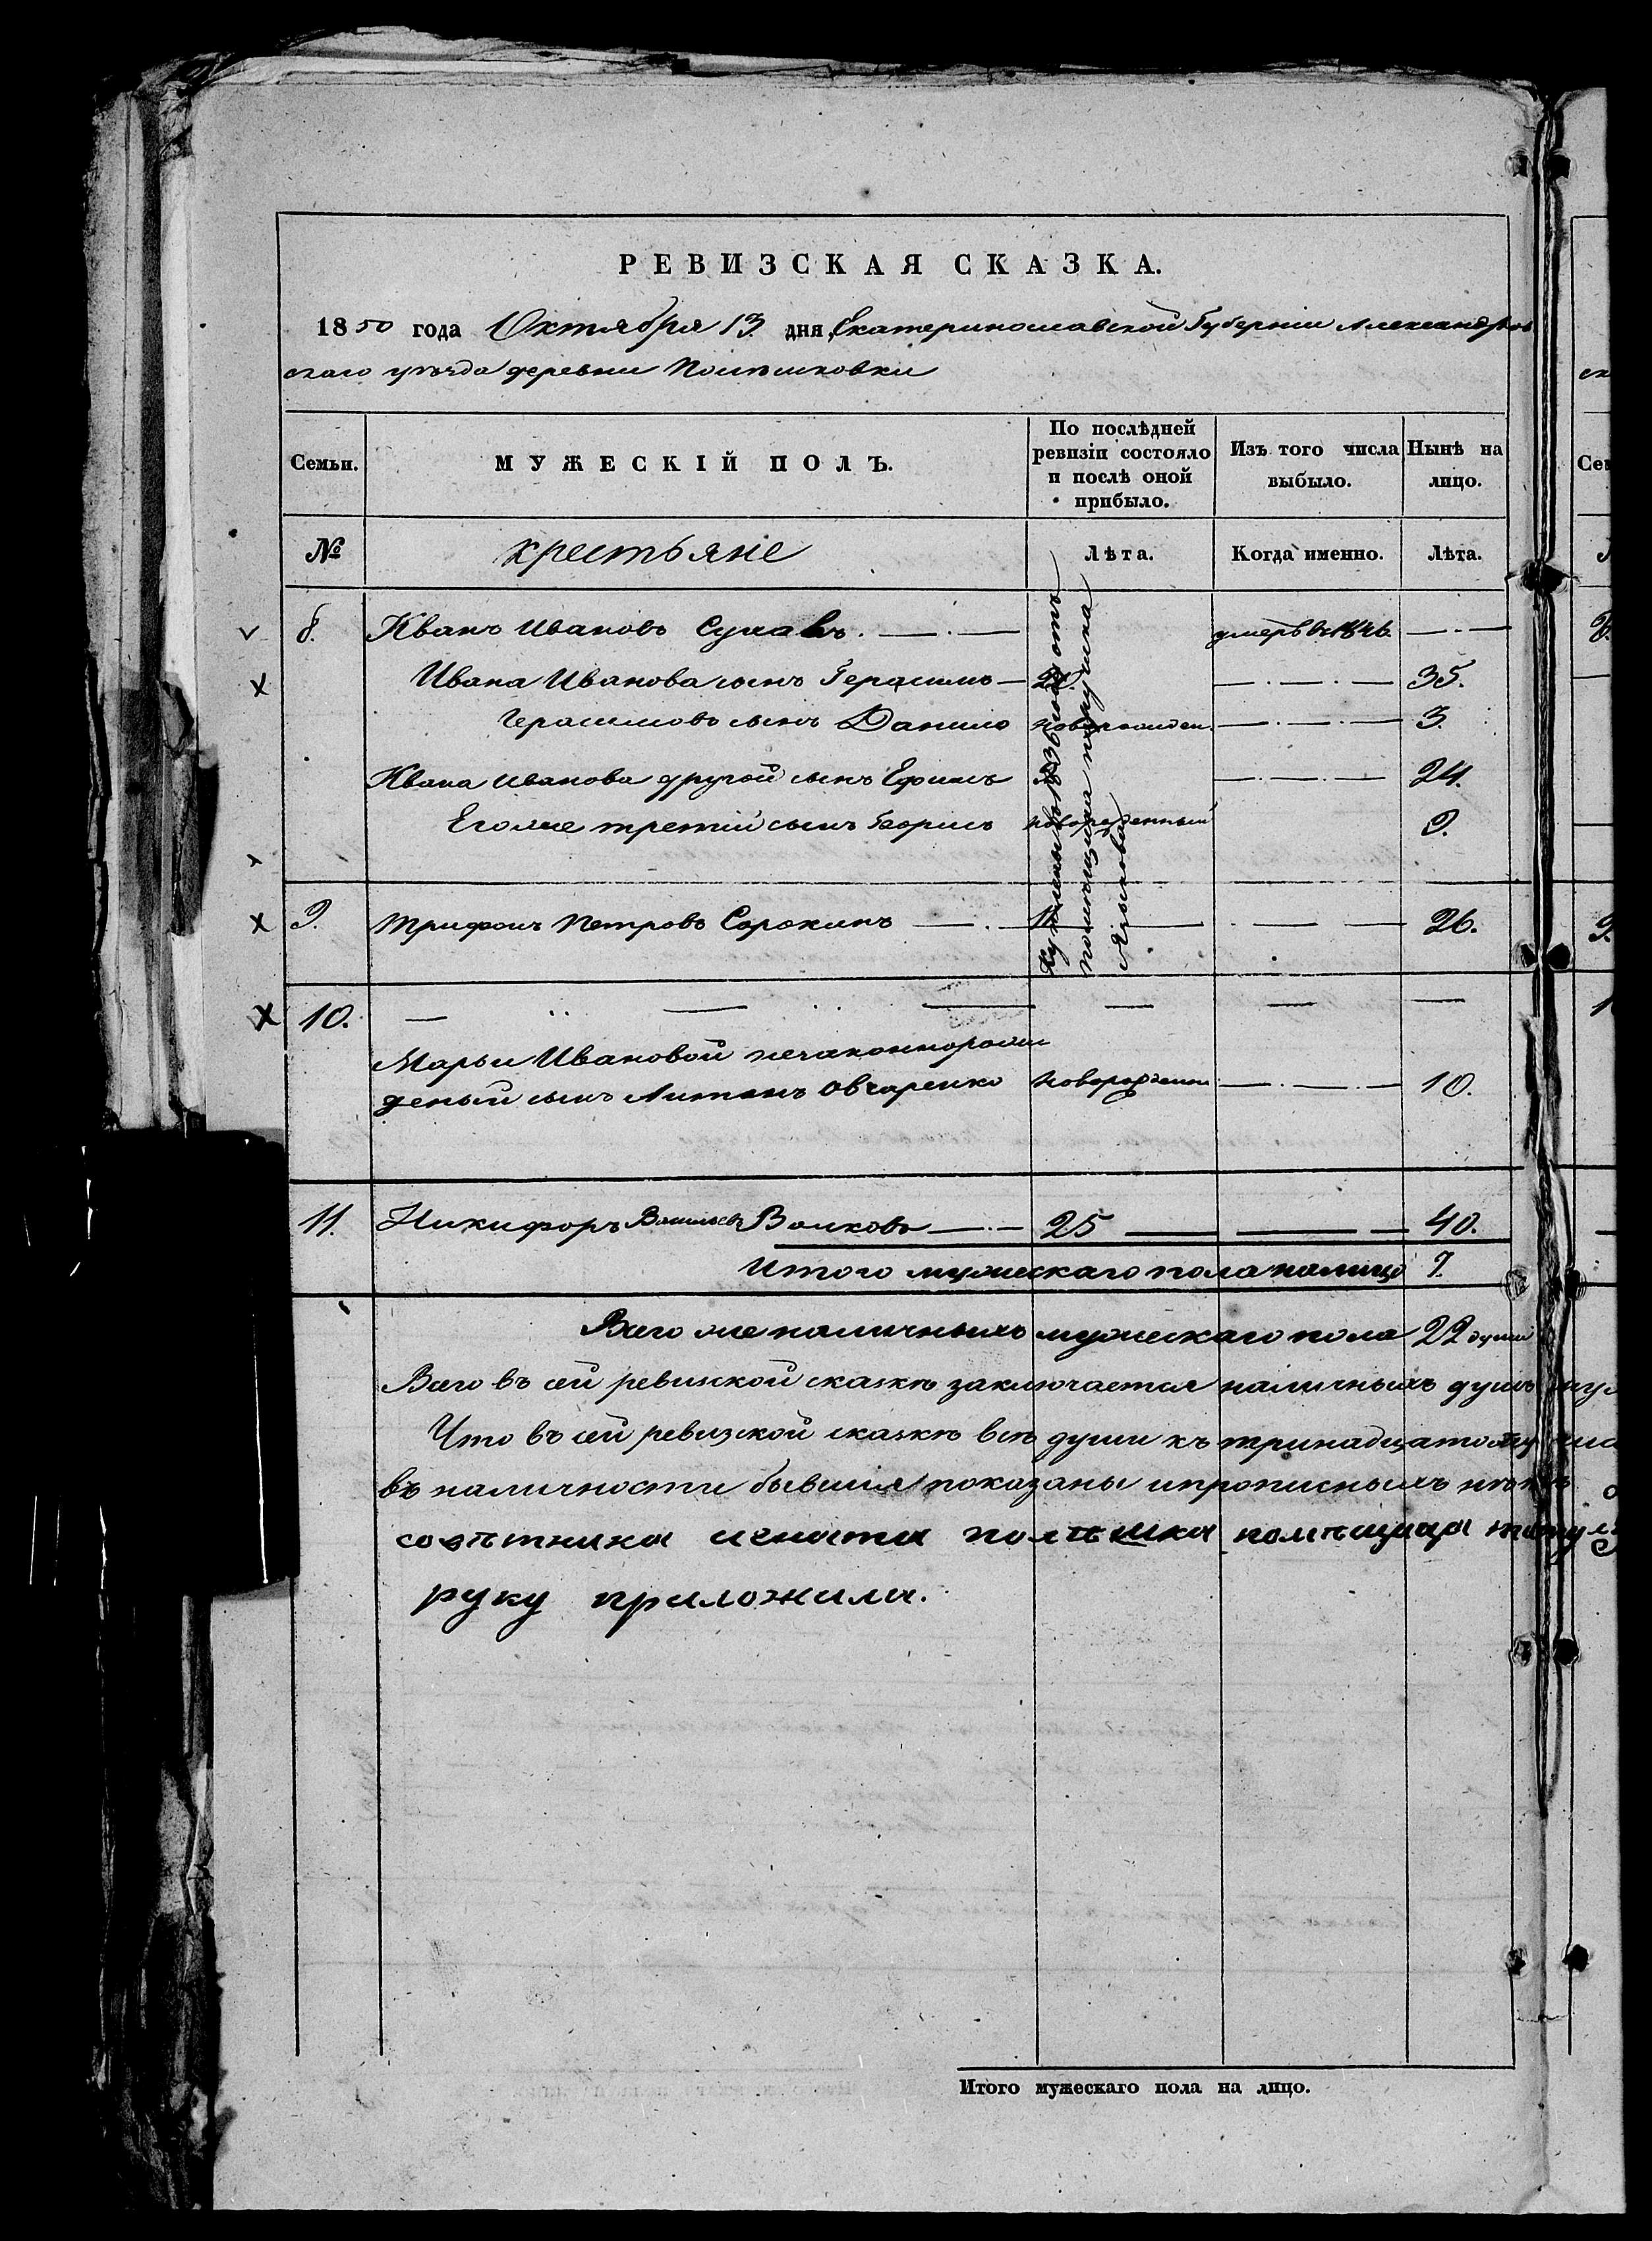 РЕВИЗСКАЯ СКАЗКА.
1850 года Октября 13 дня, Екатеринославской Губерніи Александров
скаго уѣзда деревни
Семьи.
МУЖЕСКІЙ ПОЛЪ.
По послѣдней ревизіи состояло и послѣ оной прибыло.
Изъ того числа выбыло.
Нынѣ на лицо.
№
крестьяне
Лѣта.
Когда именно.
Лѣта.
8. Иванъ Ивановъ умеръ въ 1846.
Ивана Иванова сынъ Герасимъ 35.
Герасимовъ сынъ Данило новорожден. 3.
Ивана Иванова другой сынъ Ефимъ 24.
Его же третій сынъ новорожденный 9.
Купленный въ 1836 году отъ
помѣщика
9. Трифонъ Петровъ Сорокинъ 26.
10.
Марьи Ивановой незаконнорож
деный сынъ Антонъ Овчаренко новорожденн 10.
11. Никифоръ Васильевъ Волковъ 25 40.
Итого мужескаго пола налицо 7.
Всего же наличныхъ мужескаго пола 22 души
Всего въ сей ревизской сказкѣ заключается наличныхъ душъ
Что въ сей ревизской сказкѣ всѣ души къ тринадцатому
въ наличности бывшія показаны и прописныхъ нѣтъ
совѣтника помѣщица
руку приложила.
Итого мужескаго пола на лицо.